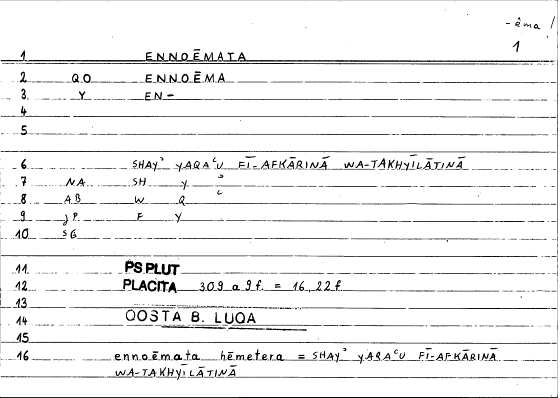 -ēma /
1
1 ENNOĒMATA
2 QO ENNOĒMA
3 Y EN-
4
5
6 SHAYʾ YAQAʿU FĪ-AFKĀRINĀ WA-TAKHYĪLĀTINĀ
7 NA SH Y ʾ
8 AB W Q ʿ
9 JP F Y
10 SG
11 PS PLUT
12 PLACITA 309 a 9f. = 16,22f.
13
14 QOSTA B. LUQA
15
16 ennoēmata hēmetera = SHAYʾ YAQAʿU FĪ-AFKĀRINĀ
WA-TAKHYĪLĀTINĀ